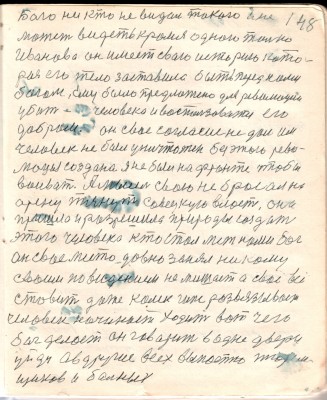 148
Бога никто не видал такого
может видеть кроме одного только
Иванова он имеет свою историю кото-
рая его тело заставила быть перед нами
Богом, ему было предложено для революции
убить человека и воспользовать его
добром. он свое согласие не дал им
человек не был уничтожен без этого рево-
люция создана. Я не был на фронте чтобы
воевать. А мысль свою не бросал на
арену тянуть советскую власть, она
пришла и разрешила природы создать
этого человека кто стал меж нами Бог
он свое место давно занял никому
своим поведением не мешает а свое всё
ставит даже калек уже развязывает
человек начинает ходить вот чего
Бог делает он говорит в одне двери
уйди а в другие всех выпустю
щиков и больных